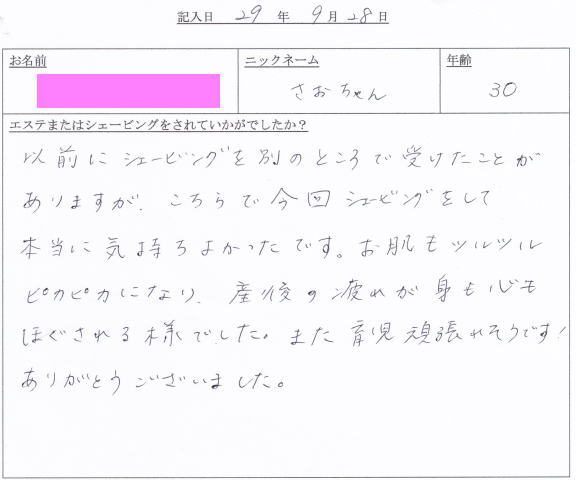 記入日 29 年 9 月 28 日
お名前 ニックネーム 年齢
さおちゃん 30
エステまたはシェービングをされていかがでしたか？
以前にシェービングを別のところで受けたことが
ありますが、こちらで今回シェービングをして
本当に気持ちよかったです。お肌もツルツル
ピカピカになり、産後の疲れが身も心も
ほぐされる様でした。また育児頑張れそうです！
ありがとうございました。